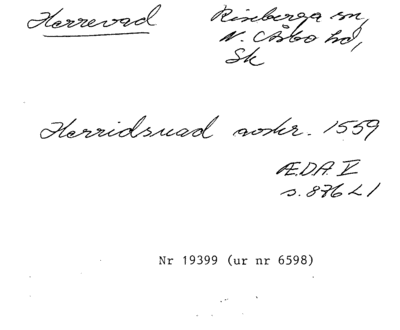 Herrevad
Riseberga sn,
N. Åsbo hd,
Sk
Herridsuad avskr. 1559
ÆDA V
s. 876 L 1
Nr 19399 (ur nr 6598)